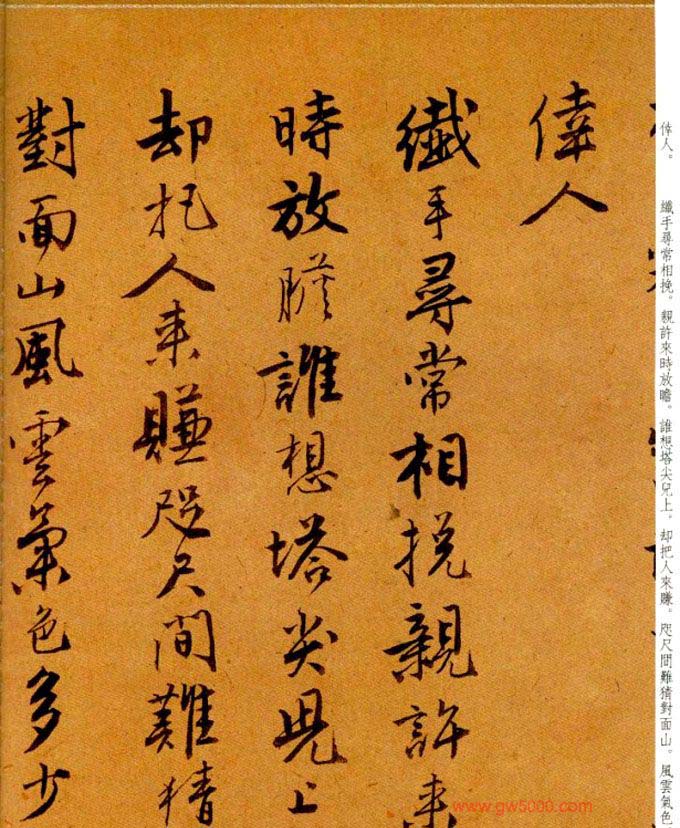 倖人。　纖手尋常相挽。親許來時放瞻。誰想塔尖兒上。却把人來賺。咫尺間難猜對面山。風雲氣色
偉人
纖手尋常相挽親許来
時放膽誰想塔尖兒上
却把人来賺咫尺間難猜
對面山風雲氣色多少
www.gw5000.com